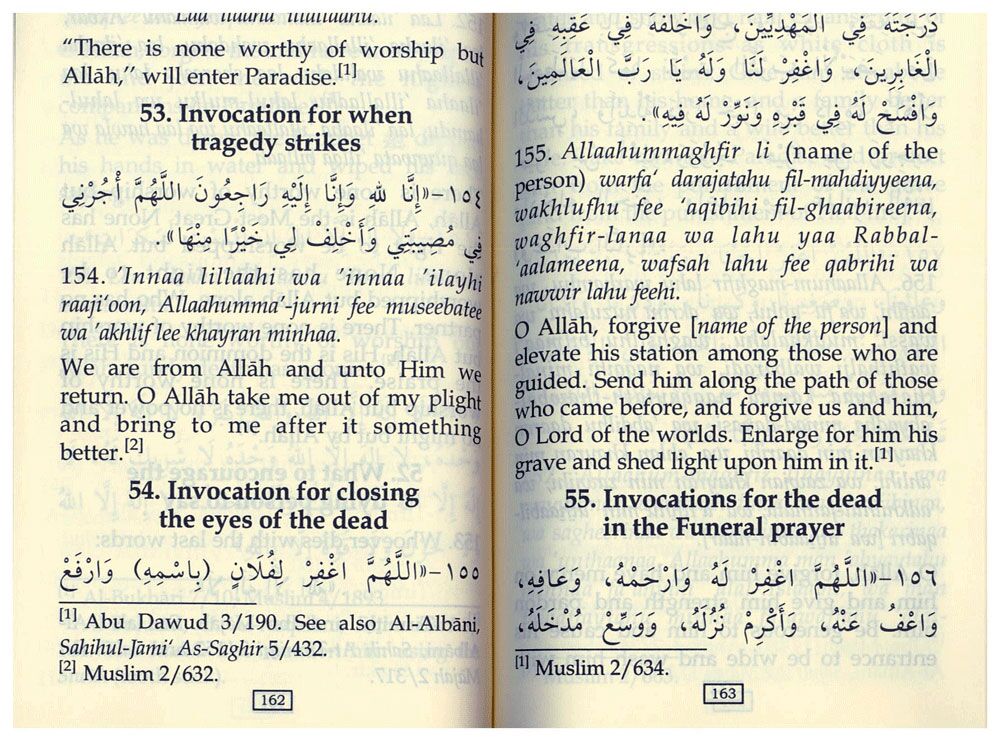 Laa ilaaha illallaahu.
“There is none worthy of worship but
Allāh,” will enter Paradise.[1]
53. Invocation for when
tragedy strikes
١٥٤-«إِنَّا لِلَّهِ وَإِنَّا إِلَيْهِ رَاجِعُونَ اللَّهُمَّ أُجُرْنِي
فِي مُصِيبَتِي وَأَخْلِفْ لِي خَيْرًا مِنْهَا».
154. ’Innaa lillaahi wa ’innaa ’ilayhi
raaji‘oon, ’Allaahumma’-jurni fee museebatee
wa ’akhlif lee khayran minhaa.
We are from Allāh and unto Him we
return. O Allāh take me out of my plight
and bring to me after it something
better.[2]
54. Invocation for closing
the eyes of the dead
١٥٥-«اللَّهُمَّ اغْفِرْ لِفُلَانٍ (بِاسْمِهِ) وَارْفَعْ
[1] Abu Dawud 3/190. See also Al-Albāni,
Sahihul-Jāmi‘ As-Saghir 5/432.
[2] Muslim 2/632.
162
دَرَجَتَهُ فِي الْمَهْدِيِّينَ، وَاخْلُفْهُ فِي عَقِبِهِ فِي
الْغَابِرِينَ، وَاغْفِرْ لَنَا وَلَهُ يَا رَبَّ الْعَالَمِينَ،
وَافْسَحْ لَهُ فِي قَبْرِهِ وَنَوِّرْ لَهُ فِيهِ».
155. Allaahummaghfir li (name of the
person) warfa‘ darajatahu fil-mahdiyyeena,
wakhlufhu fee ‘aqibihi fil-ghaabireena,
waghfir-lanaa wa lahu yaa Rabbal-
‘aalameena, wafsah lahu fee qabrihi wa
nawwir lahu feehi.
O Allāh, forgive [name of the person] and
elevate his station among those who are
guided. Send him along the path of those
who came before, and forgive us and him,
O Lord of the worlds. Enlarge for him his
grave and shed light upon him in it.[1]
55. Invocations for the dead
in the Funeral prayer
١٥٦-«اللَّهُمَّ اغْفِرْ لَهُ وَارْحَمْهُ، وَعَافِهِ،
وَاعْفُ عَنْهُ، وَأَكْرِمْ نُزُلَهُ، وَوَسِّعْ مُدْخَلَهُ،
[1] Muslim 2/634.
163